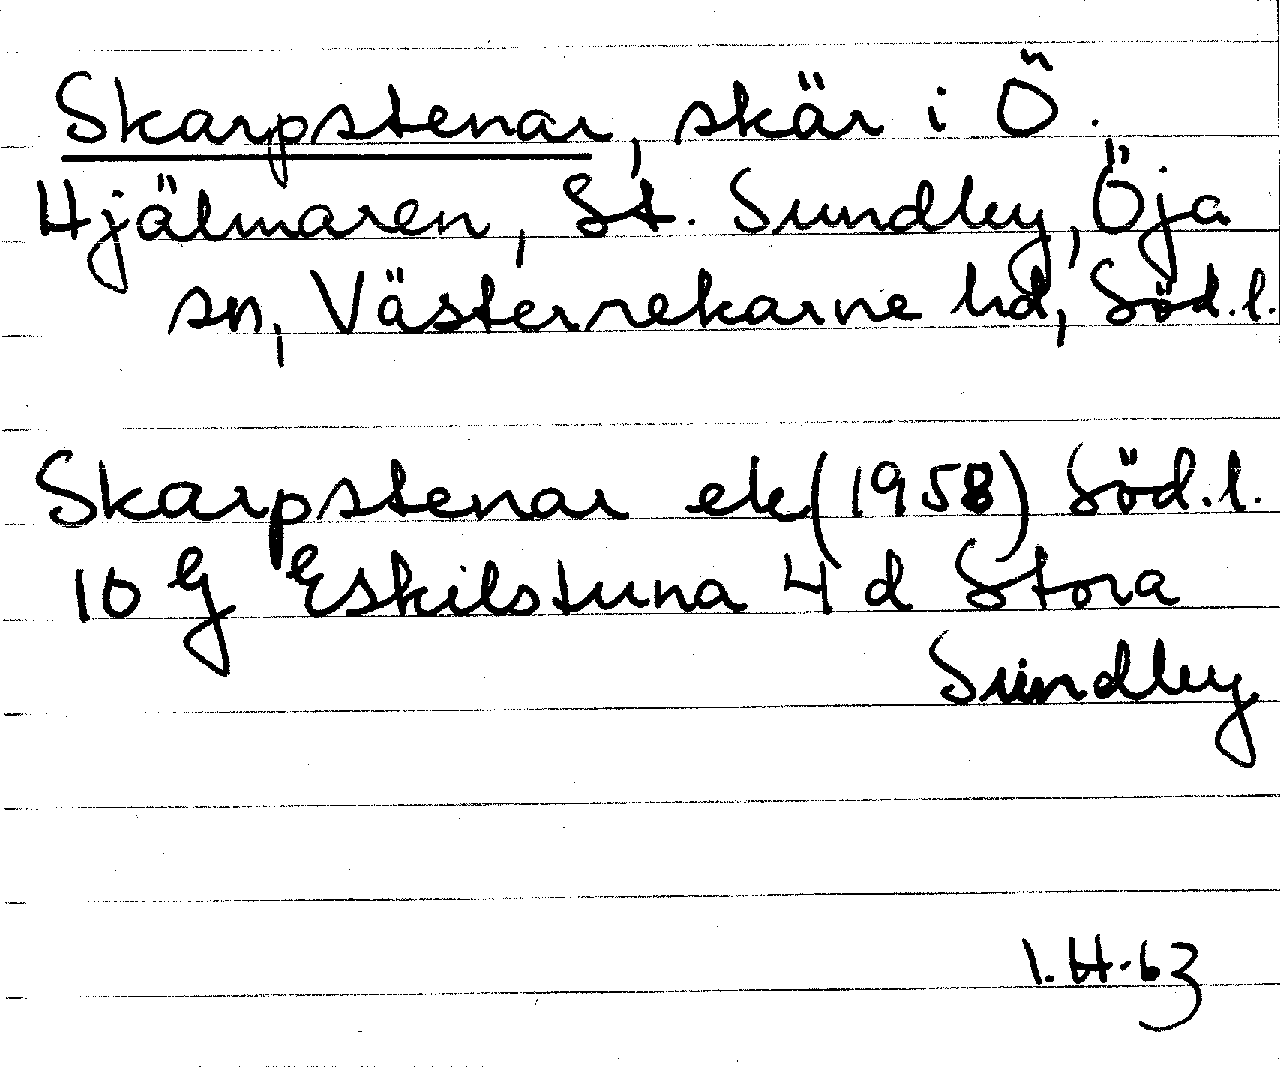 Skarpstenar, skär i Ö.
Hjälmaren, St. Sundby, Öja
sn, Västerrekarne hd, Söd.l.
Skarpstenar ek (1958) Söd.l.
10 G Eskilstuna 4 d Stora
Sundby
I.H.63